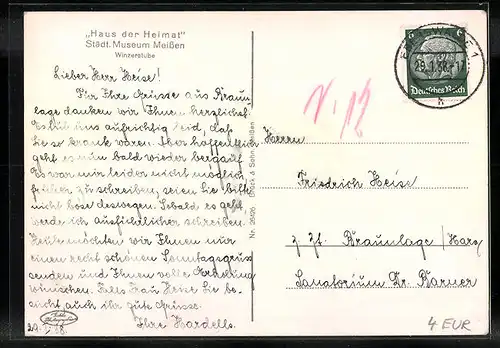 „Haus der Heimat"
Städt. Museum Meißen
Winzerstube
Lieber Herr Heise!
Für Ihre Grüsse aus Braun-
lage danken wir Ihnen herzlichst.
Es tut uns aufrichtig leid, daß
Sie so krank waren. Aber hoffentlich
geht es nun bald wieder bergauf.
Es war mir leider nicht möglich
früher zu schreiben, seien Sie bitte
nicht böse deswegen. Sobald es geht
werde ich ausführlicher schreiben.
Heute möchten wir Ihnen nur
einen recht schönen Sonntagsgruss
senden und Ihnen volle Erholung
wünschen. Falls Frau Heise Sie be-
sucht auch ihr gute Grüsse.
Ihre Hardells.
29.1.38.
Nr.
& Sohn, Meißen
6 6
Deutsches Reich
29.1.38
Herrn
Friedrich Heise
z. Zt. Braunlage / Harz
Sanatorium Dr. Barner
4 EUR